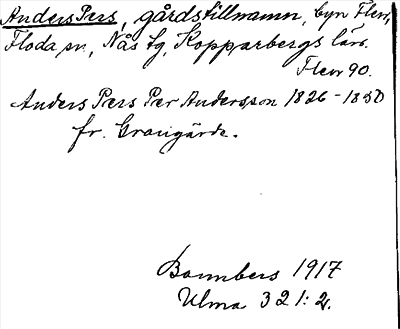 Anders Pers, gårdstillnamn, byn Flen,
Floda sn, Nås tg, Kopparbergs län.
Flen 90.
Anders Pers Per Andersson 1826-1850
fr. Grangärde.
1917
Ulma 321:2.